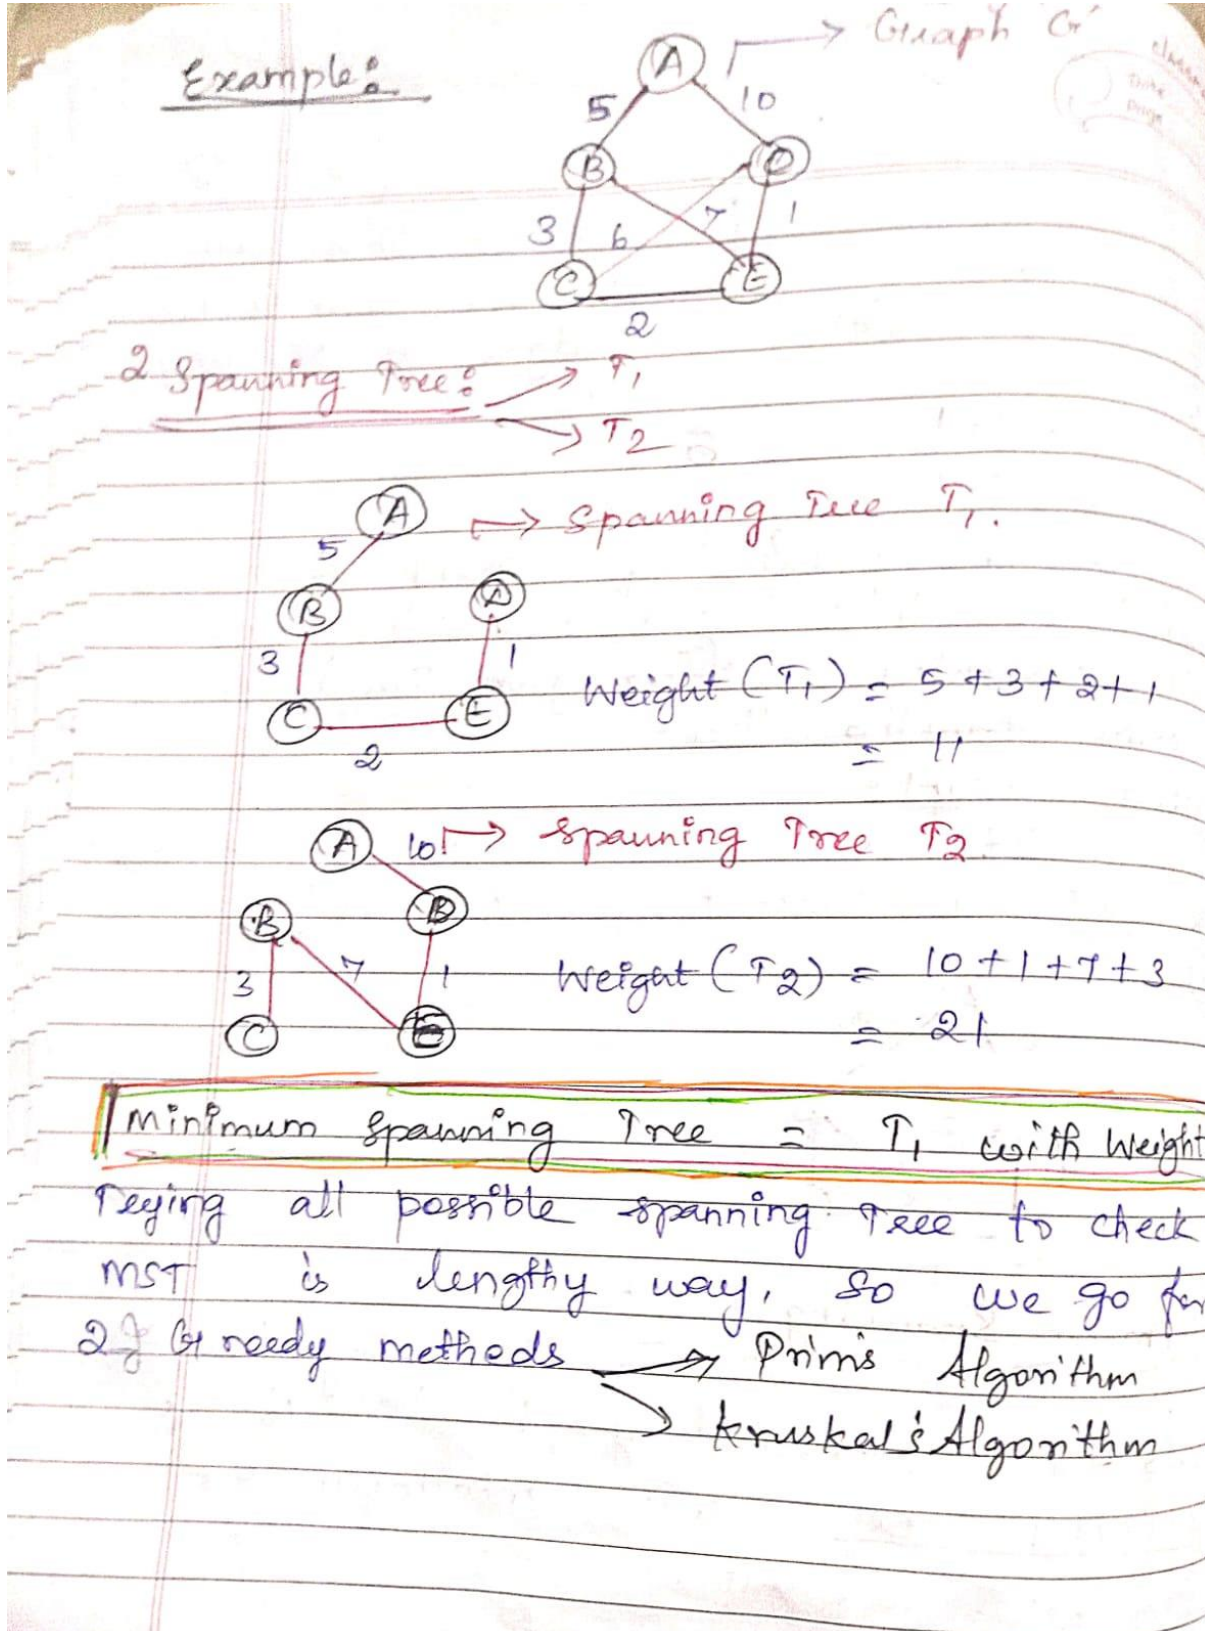 Example:
Graph G
A
5
10
B
D
3
6
7
1
C
E
2
2 Spanning Tree:
T1
T2
A
Spanning Tree T1.
5
B
D
3
1
Weight (T1) = 5+3+2+1
C
E
2
= 11
A
10
Spanning Tree T2
B
D
3
7
1
Weight (T2) = 10+1+7+3
C
E
= 21
Minimum Spanning Tree = T1 with Weight
Trying all possible spanning Tree to check
MST is lengthy way, so we go for
2 Greedy methods
Prim's Algorithm
Kruskal's Algorithm